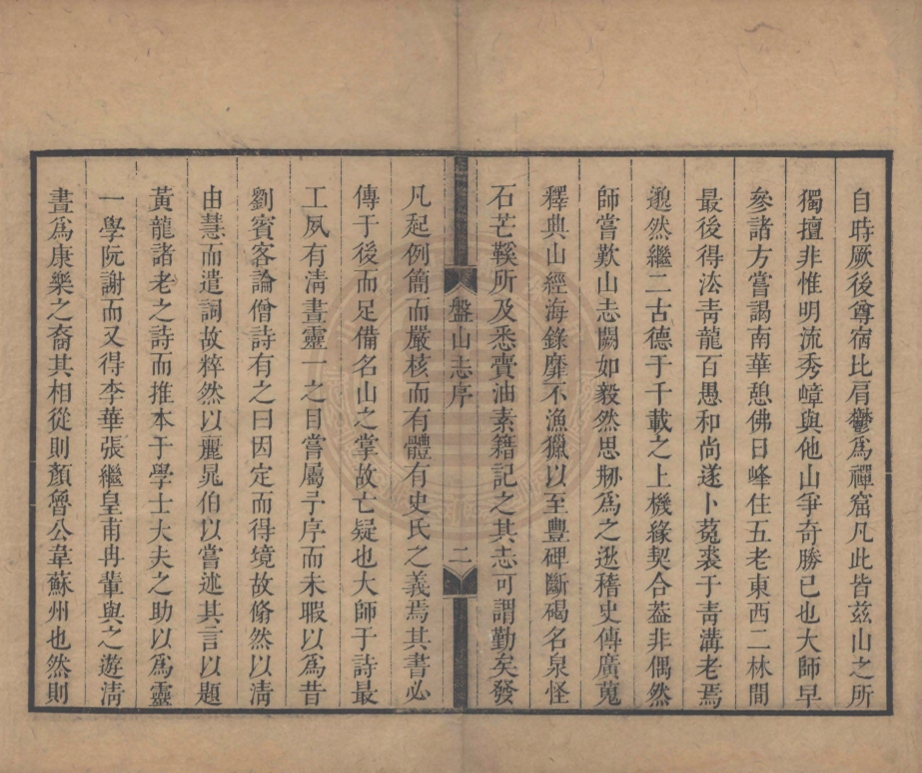 自時厥後尊宿比肩鬱爲禪窟凡此皆茲山之所
獨擅非惟明流秀嶂與他山爭奇勝已也大師早
參諸方嘗謁南華憩佛日峰住五老東西二林間
最後得法青龍百愚和尚遂卜菟裘于青溝老焉
邈然繼二古德于千載之上機緣契合葢非偶然
師嘗歎山志闕如毅然思刱爲之逖稽史傳廣蒐
釋典山經海錄靡不漁獵以至豐碑斷碣名泉怪
石芒鞵所及悉賷油素籍記之其志可謂勤矣發
盤山志序
二
凡起例簡而嚴核而有體有史氏之義焉其書必
傳于後而足備名山之掌故亡疑也大師于詩最
工夙有清晝靈一之目嘗屬予序而未暇以爲昔
劉賓客論僧詩有之曰因定而得境故翛然以清
由慧而遣詞故粹然以麗晁伯以嘗述其言以題
黃龍諸老之詩而推本于學士大夫之助以爲靈
一學阮謝而又得李華張繼皇甫冉輩與之遊清
晝爲康樂之裔其相從則顏魯公韋蘇州也然則